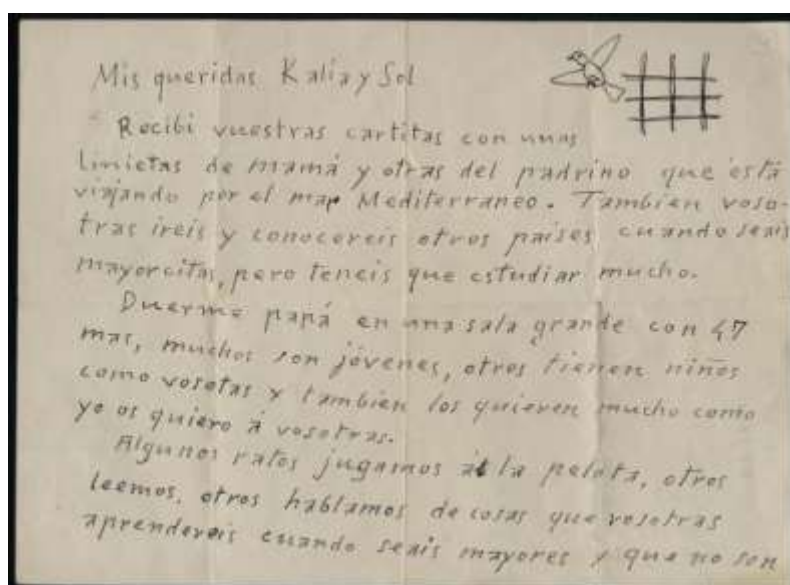 Mis queridas Kalia y Sol
Recibi vuestras cartitas con unas
linietas de mamá y otras del padrino que está
viajando por el mar Mediterraneo. Tambien voso-
tras ireis y conocereis otros países cuando seais
mayorcitas, pero teneis que estudiar mucho.
Duerme papá en una sala grande con 47
mas, muchos son jóvenes, otros tienen niños
como vosotas y tambien los quieren mucho como
yo os quiero á vosotras.
Algunos ratos jugamos á la pelota, otros
leemos, otros hablamos de cosas que vosotras
aprendereis cuando seais mayores y que no son